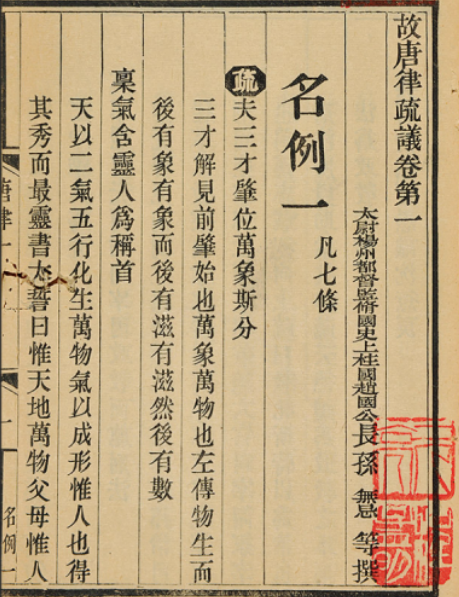 故唐律疏議卷第一
太尉楊州都督監脩國史上柱國趙國公長孫無忌等撰
名例一 凡七條
疏 夫三才肇位萬象斯分
三才解見前肇始也萬象萬物也左傳物生而
後有象有象而後有滋有滋然後有數
稟氣含靈人爲稱首
天以二氣五行化生萬物氣以成形惟人也得
其秀而最靈書太誓曰惟天地萬物父母惟人
唐律一
一
名例一